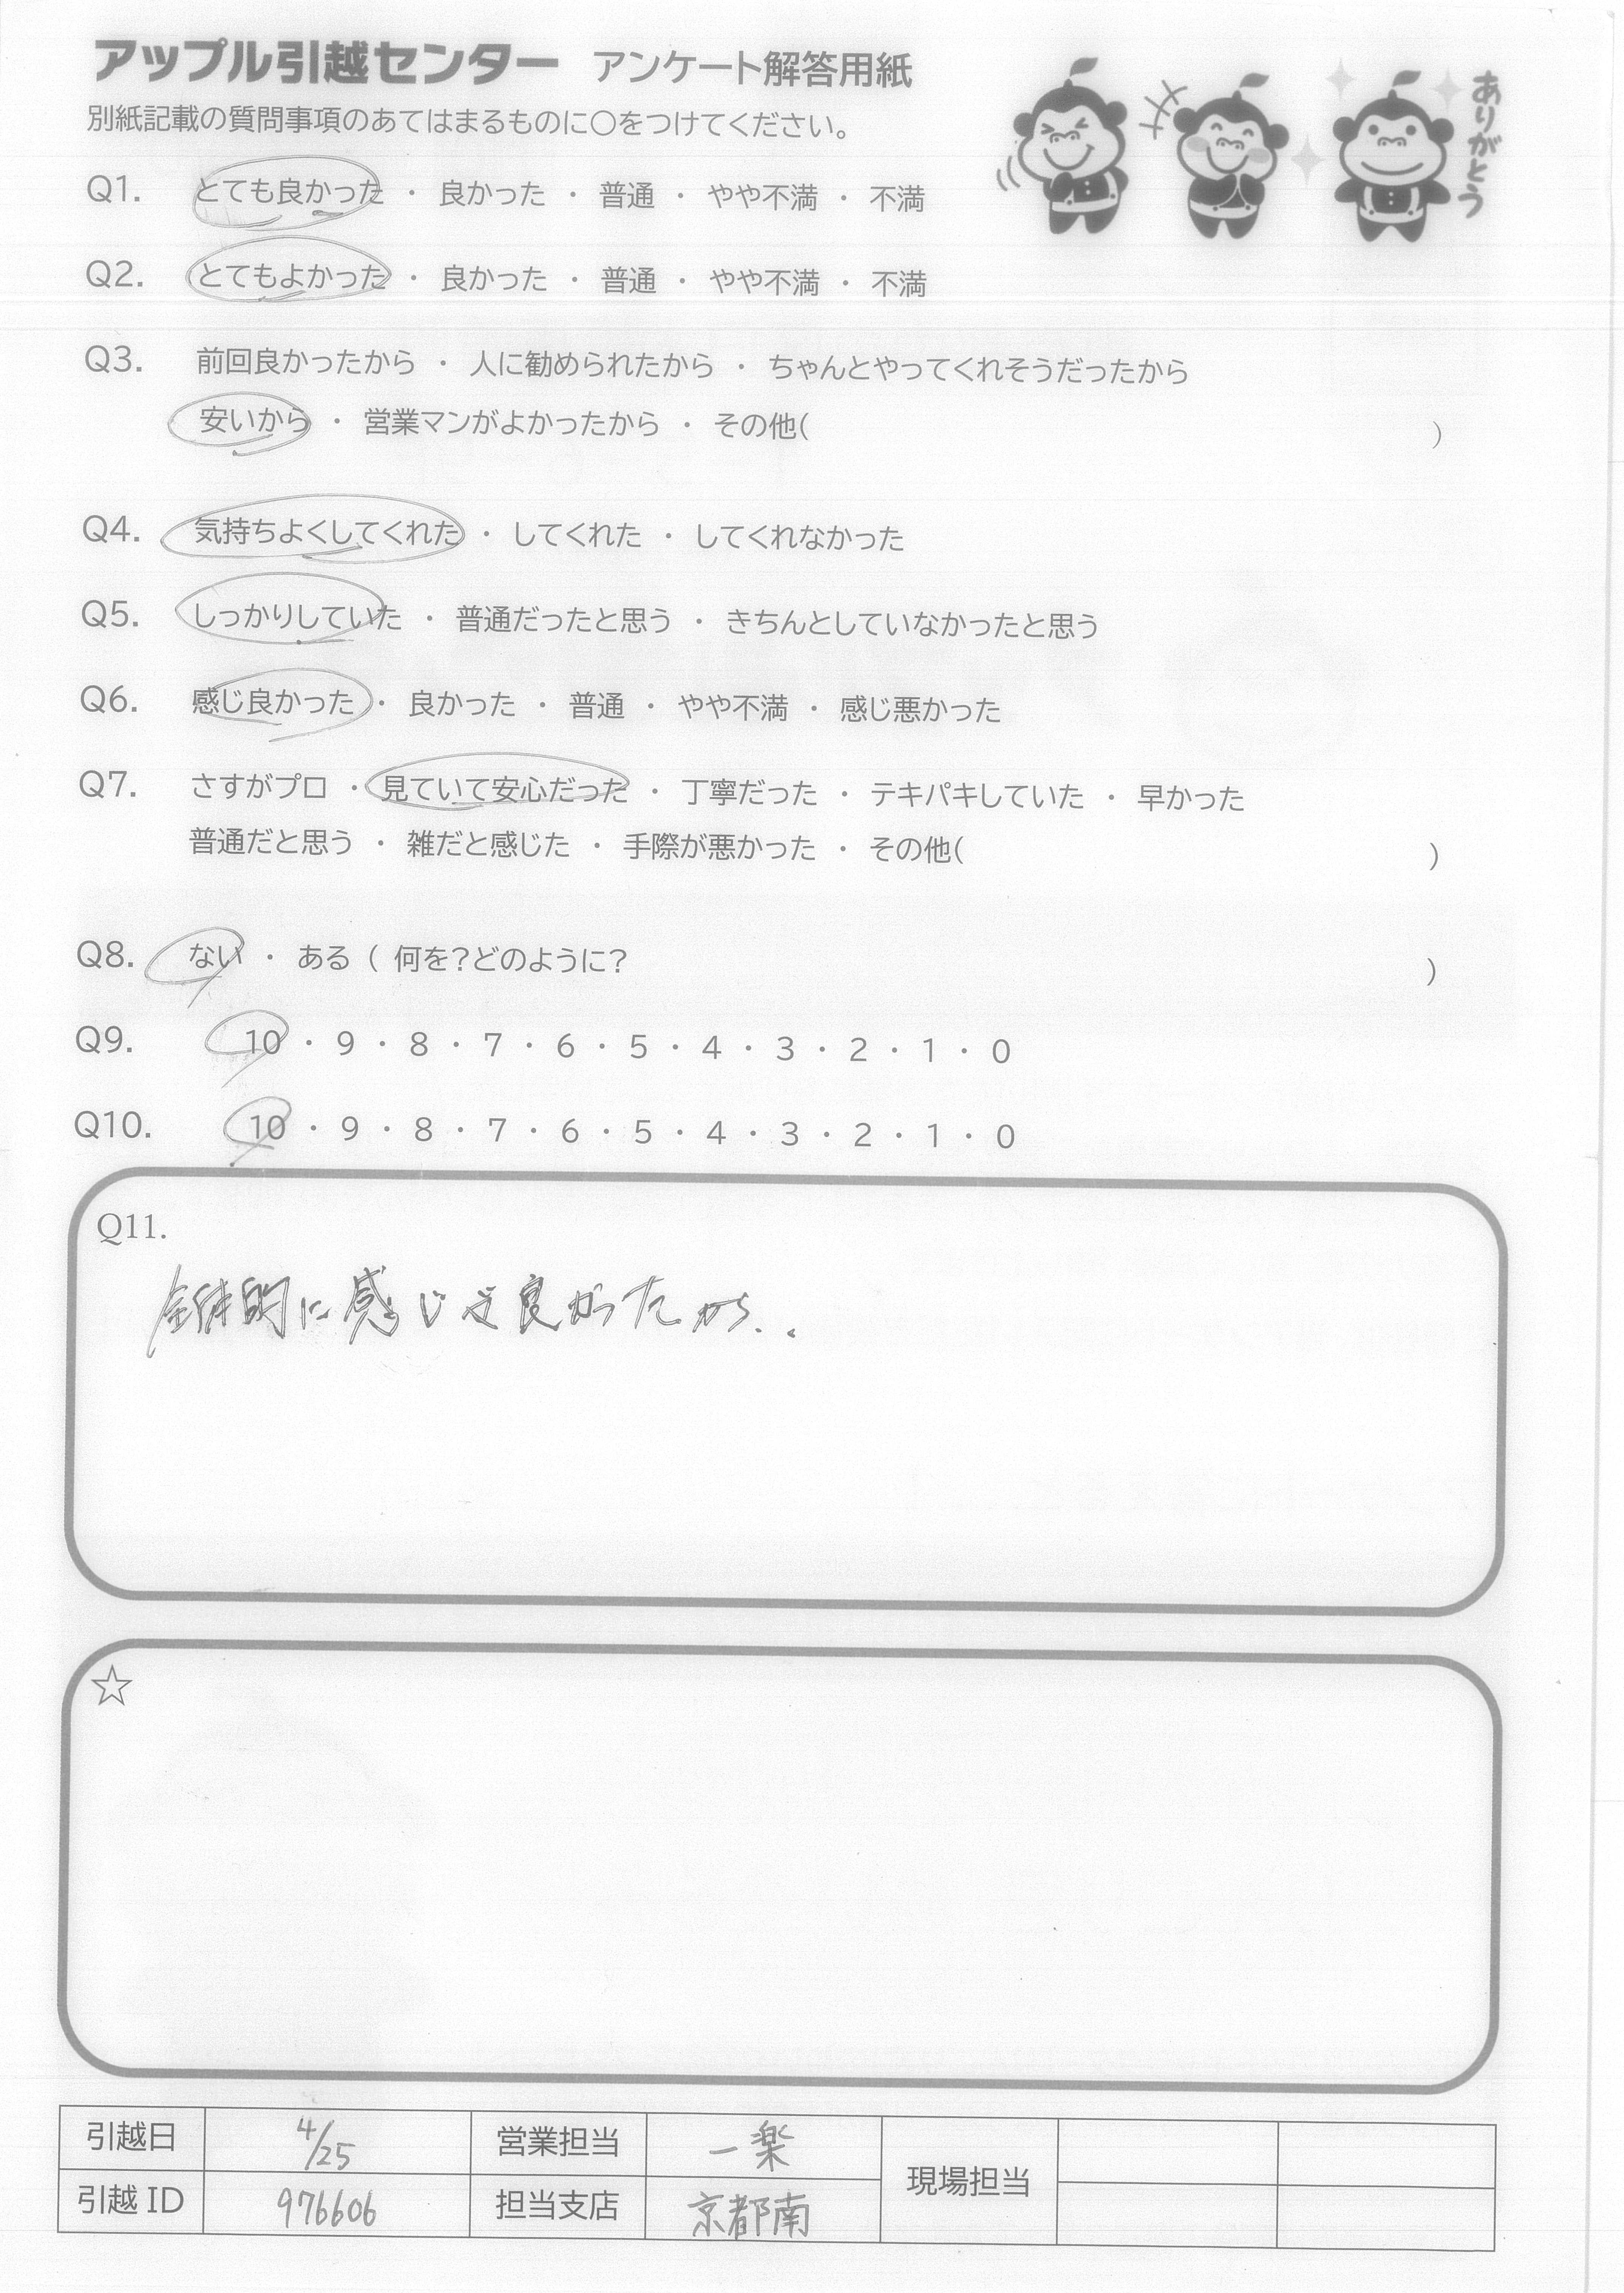 アップル引越センター アンケート解答用紙
ありがとう
別紙記載の質問事項のあてはまるものに○をつけてください。
Q1. とても良かった ・ 良かった ・ 普通 ・ やや不満 ・ 不満
Q2. とてもよかった ・ 良かった ・ 普通 ・ やや不満 ・ 不満
Q3. 前回良かったから ・ 人に勧められたから ・ ちゃんとやってくれそうだったから
安いから ・ 営業マンがよかったから ・ その他( )
Q4. 気持ちよくしてくれた ・ してくれた ・ してくれなかった
Q5. しっかりしていた ・ 普通だったと思う ・ きちんとしていなかったと思う
Q6. 感じ良かった ・ 良かった ・ 普通 ・ やや不満 ・ 感じ悪かった
Q7. さすがプロ ・ 見ていて安心だった ・ 丁寧だった ・ テキパキしていた ・ 早かった
普通だと思う ・ 雑だと感じた ・ 手際が悪かった ・ その他( )
Q8. ない ・ ある ( 何を?どのように? )
Q9. 10 ・ 9 ・ 8 ・ 7 ・ 6 ・ 5 ・ 4 ・ 3 ・ 2 ・ 1 ・ 0
Q10. 10 ・ 9 ・ 8 ・ 7 ・ 6 ・ 5 ・ 4 ・ 3 ・ 2 ・ 1 ・ 0
Q11.
全体的に感じ良かったから。
☆
引越日 4/25 営業担当 一楽 現場担当
引越ID 976606 担当支店 京都南